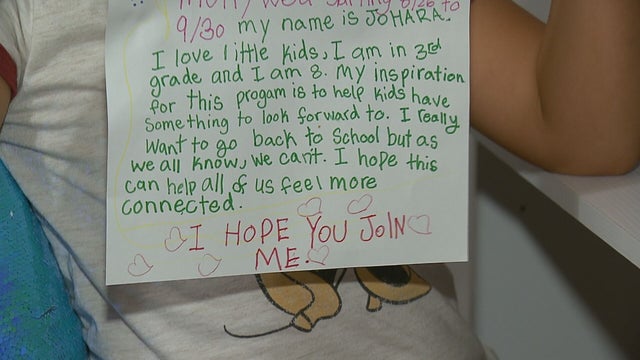 Mon/Wed starting 8/26 to
9/30 my name is JOHARA.
I love little kids, I am in 3rd
grade and I am 8. My inspiration
for this progam is to help kids have
something to look forward to. I really
want to go back to school but as
we all know, we can't. I hope this
can help all of us feel more
connected.
I HOPE YOU JOIN
ME.